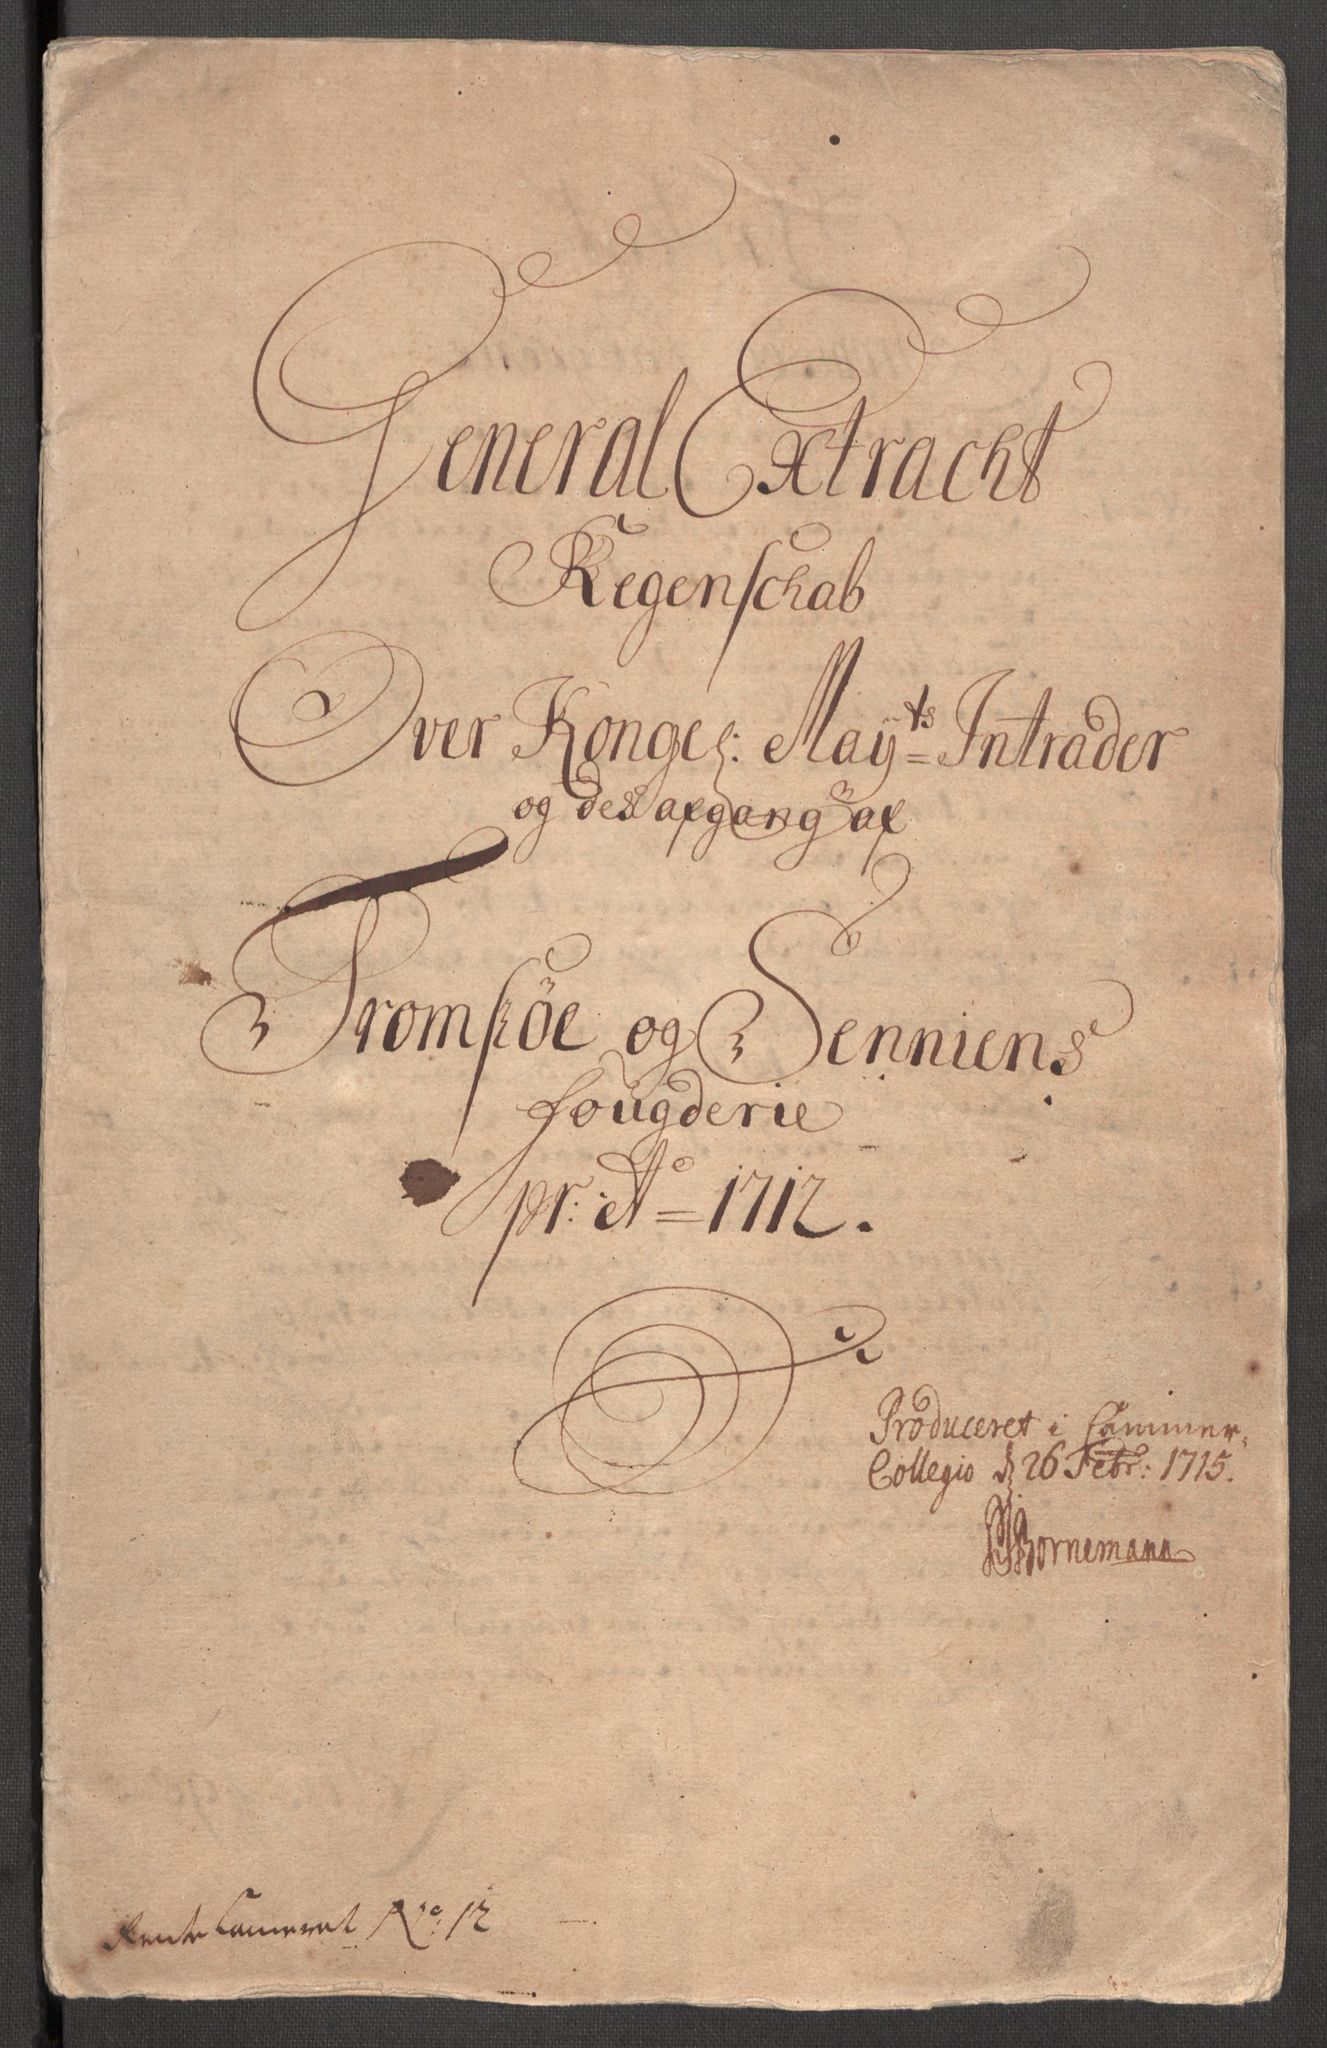 General Extracht
Regenschab
Over Kongel: Mayts Intrader
og des afgang af
Tromsøe og Senniens
fougderie
pr: Ao 1712.
Produceret i Cammer-
Collegio d. 26 Febr: 1715.
Bornemann
Rente Cammeret No: 12